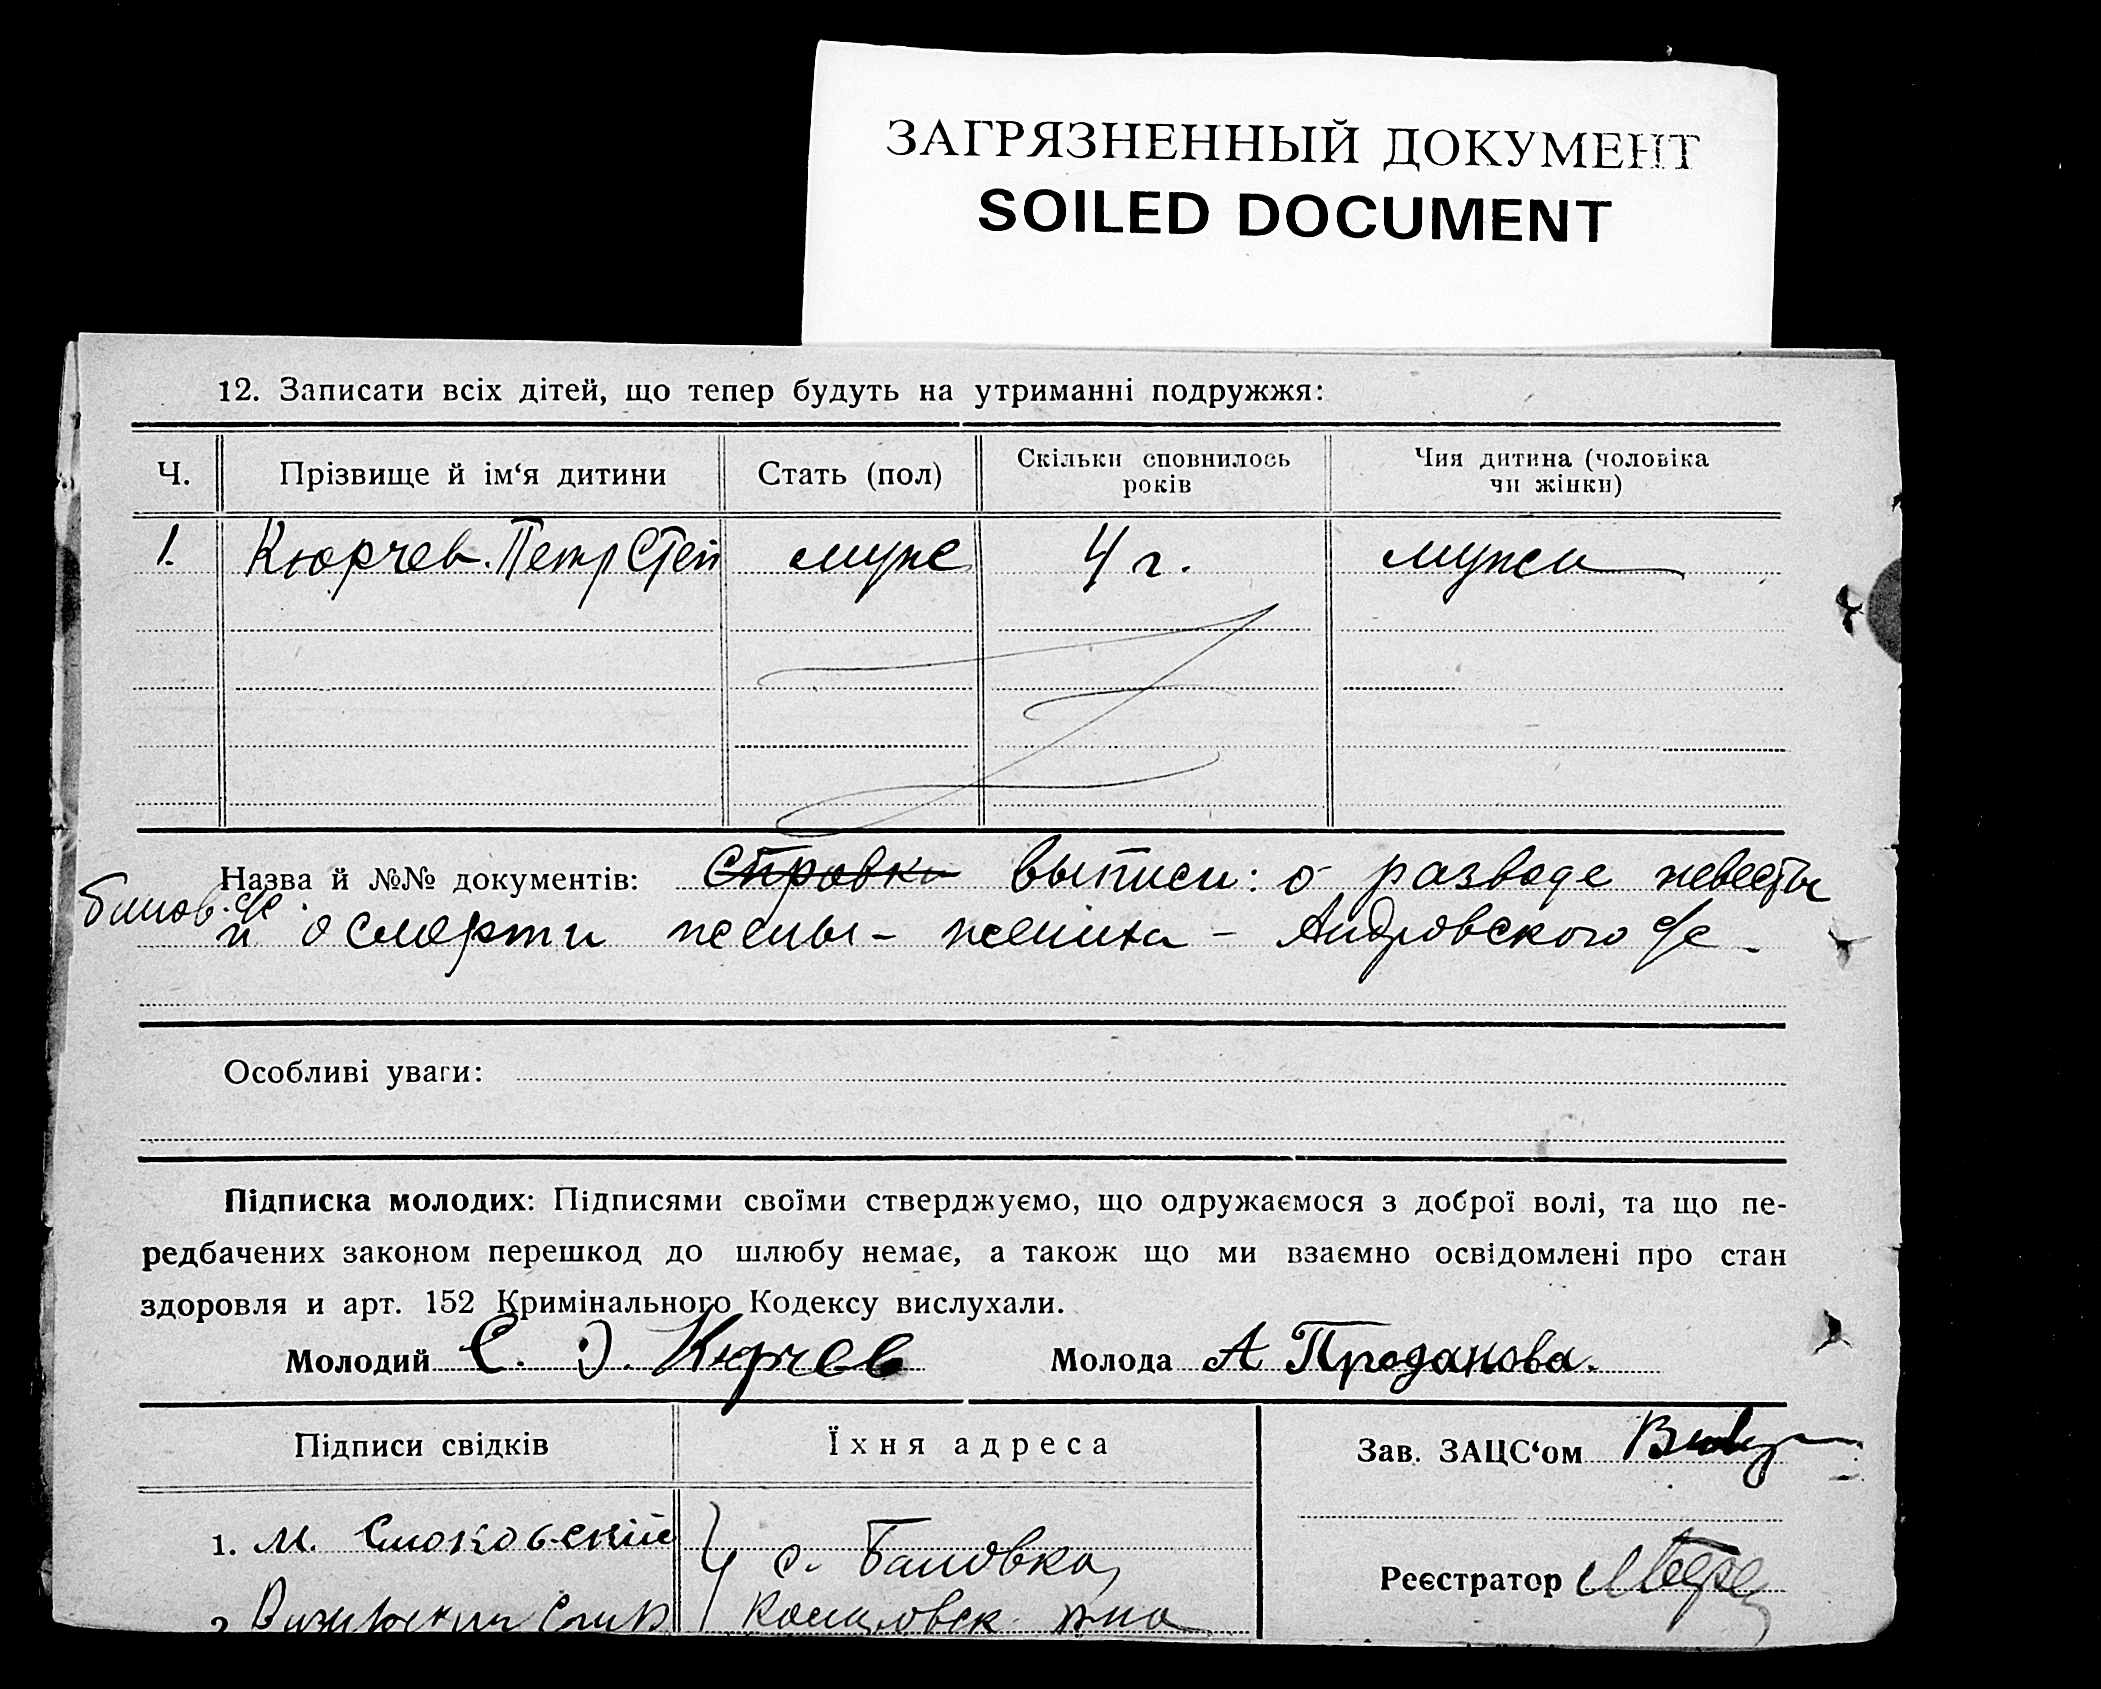 ЗАГРЯЗНЕННЫЙ ДОКУМЕНТ
SOILED DOCUMENT
12. Записати всіх дітей, що тепер будуть на утриманні подружжя:
Ч. Прізвище й ім‘я дитини Стать (пол) Скільки сповнилось років Чия дитина (чоловіка чи жінки)
1. Кюрчев. Петр Степ муж 4 г. мужа
Назва й №№ документів: справки выписи: о разводе невесты
и о смерти жены - жениха - Андровского с/с
Особливі уваги:
Підписка молодих: Підписями своїми стверджуємо, що одружаємося з доброї волі, та що пе-
редбачених законом перешкод до шлюбу немає, а також що ми взаємно освідомлені про стан
здоровля и арт. 152 Кримінального Кодексу вислухали.
Молодий С. Д. Кюрчев Молода А Проданова.
Підписи свідків Їхня адреса Зав. ЗАЦС‘ом
1. М.
с. Бановка,
Реєстратор
2